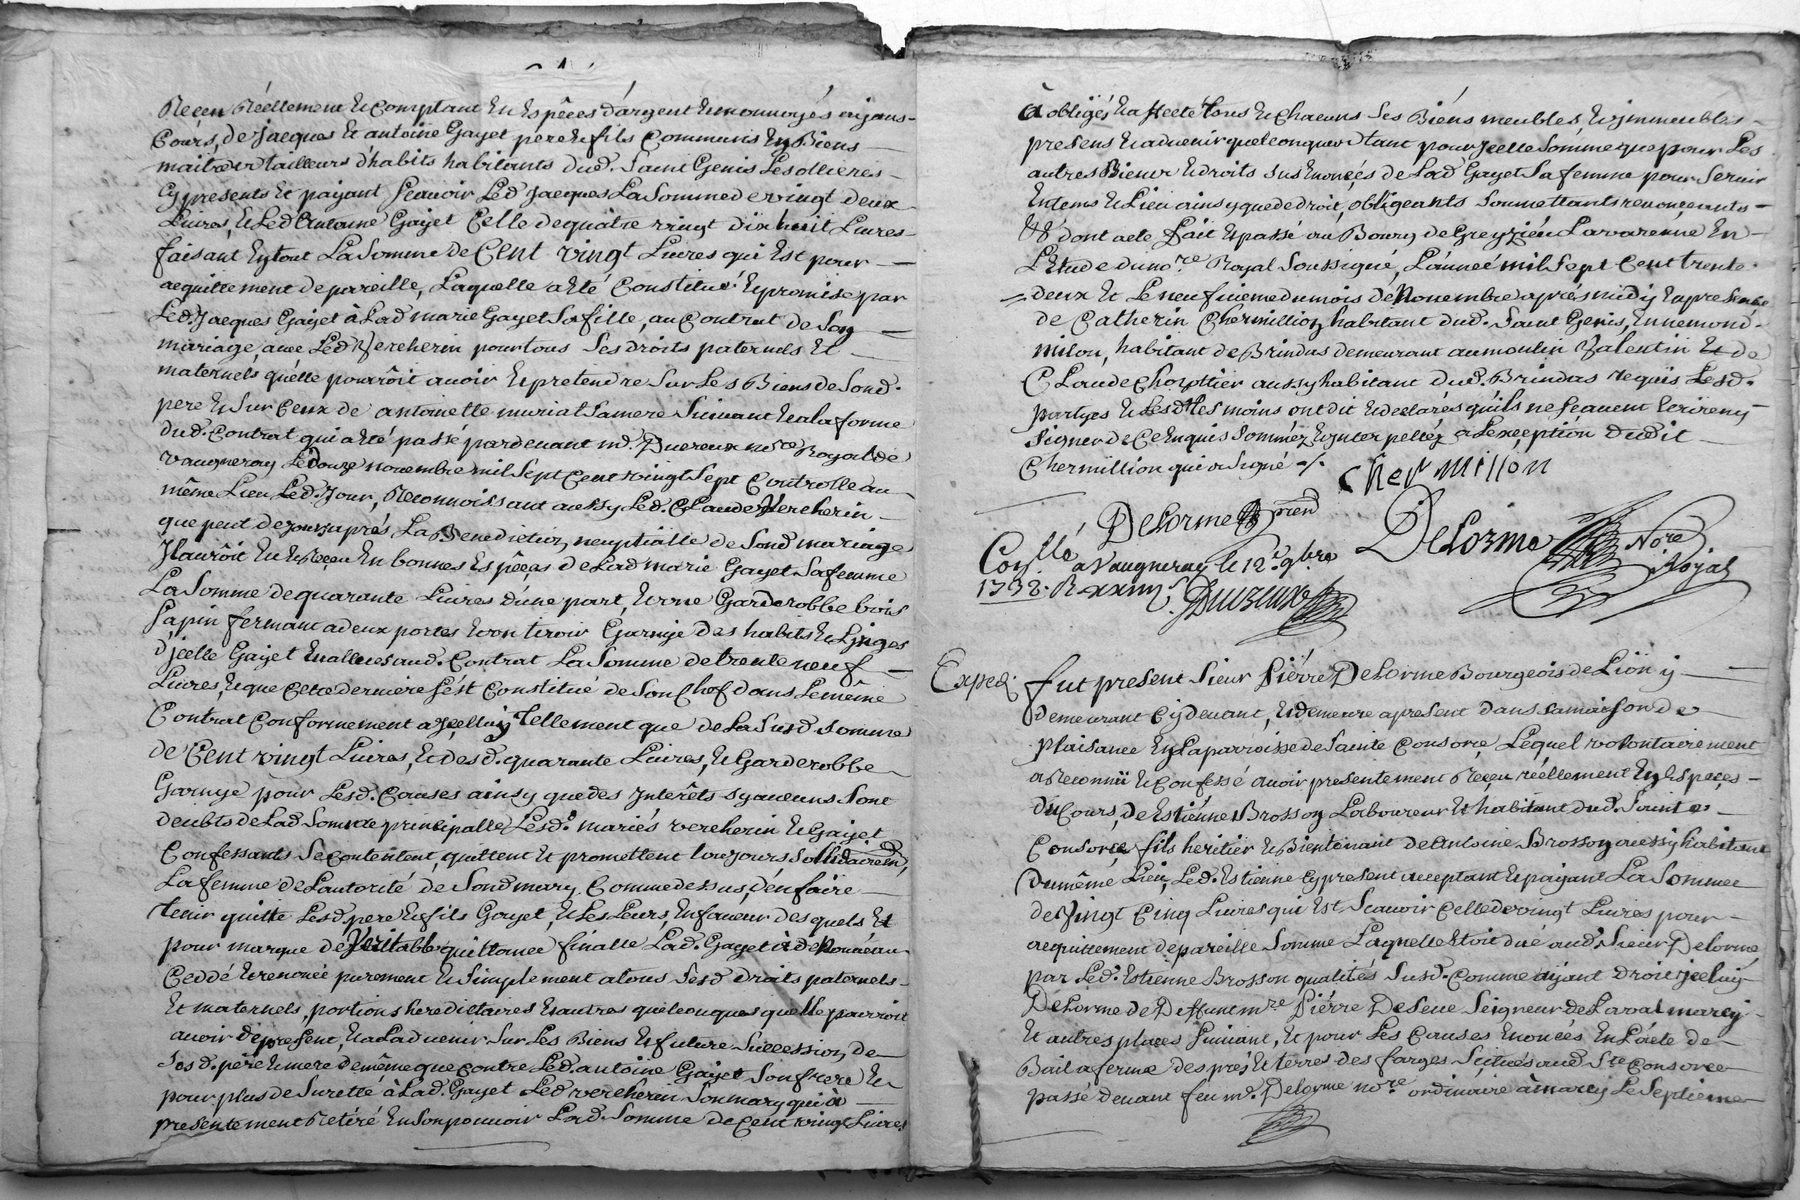 Reçeu Réellement et Comptant en Espêces d'argent et monnoyés ayans-
Cours, de Jacques et antoine Gayet pere et fils Communs En Biens
maitres tailleurs d'habits habitants dud. Saint Genis Les ollieres
Cy presents et payant sçavoir Led Jacques La Somme de vingt deux
Livres, et Led Antoine Gayet Celle de quatre vingt dix huit Livres
faisant En tout La Somme de Cent vingt Livres qui Est pour
acquittement de pareille, Laquelle a été Constitué et promise par
Led. Jacques Gayet à Lad marie Gayet Sa fille, au Contrat de Son
mariage, avec Led Vercherin pour tous Ses droits paternels et
maternels qu'elle pourrôit avoir et pretendre Sur Les Biens de Sond.
pere et Sur Ceux de antoinette muriat Sa mere Suivant et a la forme
dud. Contrat qui a été passé pardevant me. Duvreux nore Royal de
vaugneray Le douze novembre mil Sept Cent vingt Sept Controllé au
même Lieu Led. Jour, Reconnoissant aussy Led. Claude Vercherin
que peut de jours aprés La Benediction nuptialle de Sond mariage
Il auroit Eu et Reçeu En bonnes Espêces de Lad marie Gayet Sa femme
La Somme de quarante Livres d'une part, et une Garderobbe bois
Sapin fermant a deux portes et un tiroir Garnye des habits et Linges
d'jcelle Gayet Evallués aud. Contrat La Somme de trente neuf
Livres, et que Cette derniere s'ést Constitué de Son Chef dans Le même
Contrat Conformement a jcelluy tellement que de La Susd. Somme
de Cent vingt Livres, et desd. quarante Livres, et Garderobbe
Garnye pour Lesd. Causes ainsy que des Interêts sy aucuns Sont
deubts de Lad Somme principalle Lesd. mariés vercherin et Gayet
Confessants Se Contentent, quittent et promettent toujours Sollidairemt,
La femme de L'autorité de Sond mary Comme dessus, d'én faire
tenir quitte Lesd. pere et fils Gayet, et Les Leurs En faveur des quels et
pour marque de Veritable quittance finalle Lad. Gayet à de Nouveau
Ceddé et renoncé purement et Simplement a tous Sesd droits paternels
Et maternels, portions hereditaires et autres quelconques quelle pourroit
avoir de present, et a L'advenir Sur Les Biens et future Succession de
Sesd. père et mere de même que contre Led. antoine Gayet Son frere et
pour plus de Surette à Lad. Gayet Led vercherin Son mary qui a
presentement Retiré En Son pouvoir Lad. Somme de Cent vingt Livres
à obligés et affecté tous et Chacuns Ses Biéns meubles, et jmmeubles
presens et advenir quelconques tant pour jcelle Somme que pour Les
autres Biens et droits Sus Enoncés de Lad Gayet Sa femme pour Servir
En tems et Lieu ainsy que de droit, obligeants Soumettants renonçeants
&a dont acte fait et passé au Bourg de Grezieu Lavarenne En
L'étude du nore Royal Soussigné, L'année mil Sept Cent trente
deux et Le neufvieme du mois de Novembre aprés midy En presence
de Catherin Chermillion habitant dud. Saint Genis, Ennemond
milou, habitant de Brindas demeurant au moulin Valentin et de
Claude Chorttier aussy habitant dud. Brindas requis Lesd.
partyes et Lesd. tesmoins ont dit et declarés qu'ils ne Sçavent Ecrire ny
Signer de Ce Enquis Sommés et jnterpellés a L'exception dudit
Chermillion qui a Signé ./.
Cher millon
Delorme
Delorme Nore Royal
Conllé a Vaugneray le 12e 9bre
1732. R xxiiij s.
Duvreux
Exped.
fut present Sieur Piérre Delorme Bourgeois de Lion y
demeurant Cy devant, et demeure a present dans Sa maison de
plaisance En La parroisse de Sainte Consorce Lequel volontairement
a Reconnu et Confessé avoir presentement Reçeu réellement En Espeçes
du Cours, de Estiénne Brosson Laboureur et habitant dud. Sainte
Consorce fils heritier et Bientenant de Antoine Brosson aussy habitant
du même Lieu, Led. Estienne Cy present acceptant et payant La Somme
de Vingt Cinq Livres qui Est Scavoir Celle de vingt Livres pour
acquittement de pareille Somme Laquelle Etoit dué aud. Sieur Delorme
par Led. Estienne Brosson qualités Susd. Comme ayant droit jceluy
Delorme de Deffunt mre Piérre Deseve Seigneur de Laval marcy
Et autres places Suivant, et pour Les Causes Enoncés En L'acte de
Bail a ferme des prés et terres des farges Scitués aud Ste Consorce
passé devant feu me. Delorme nore ordinaire à marcy Le Septieme